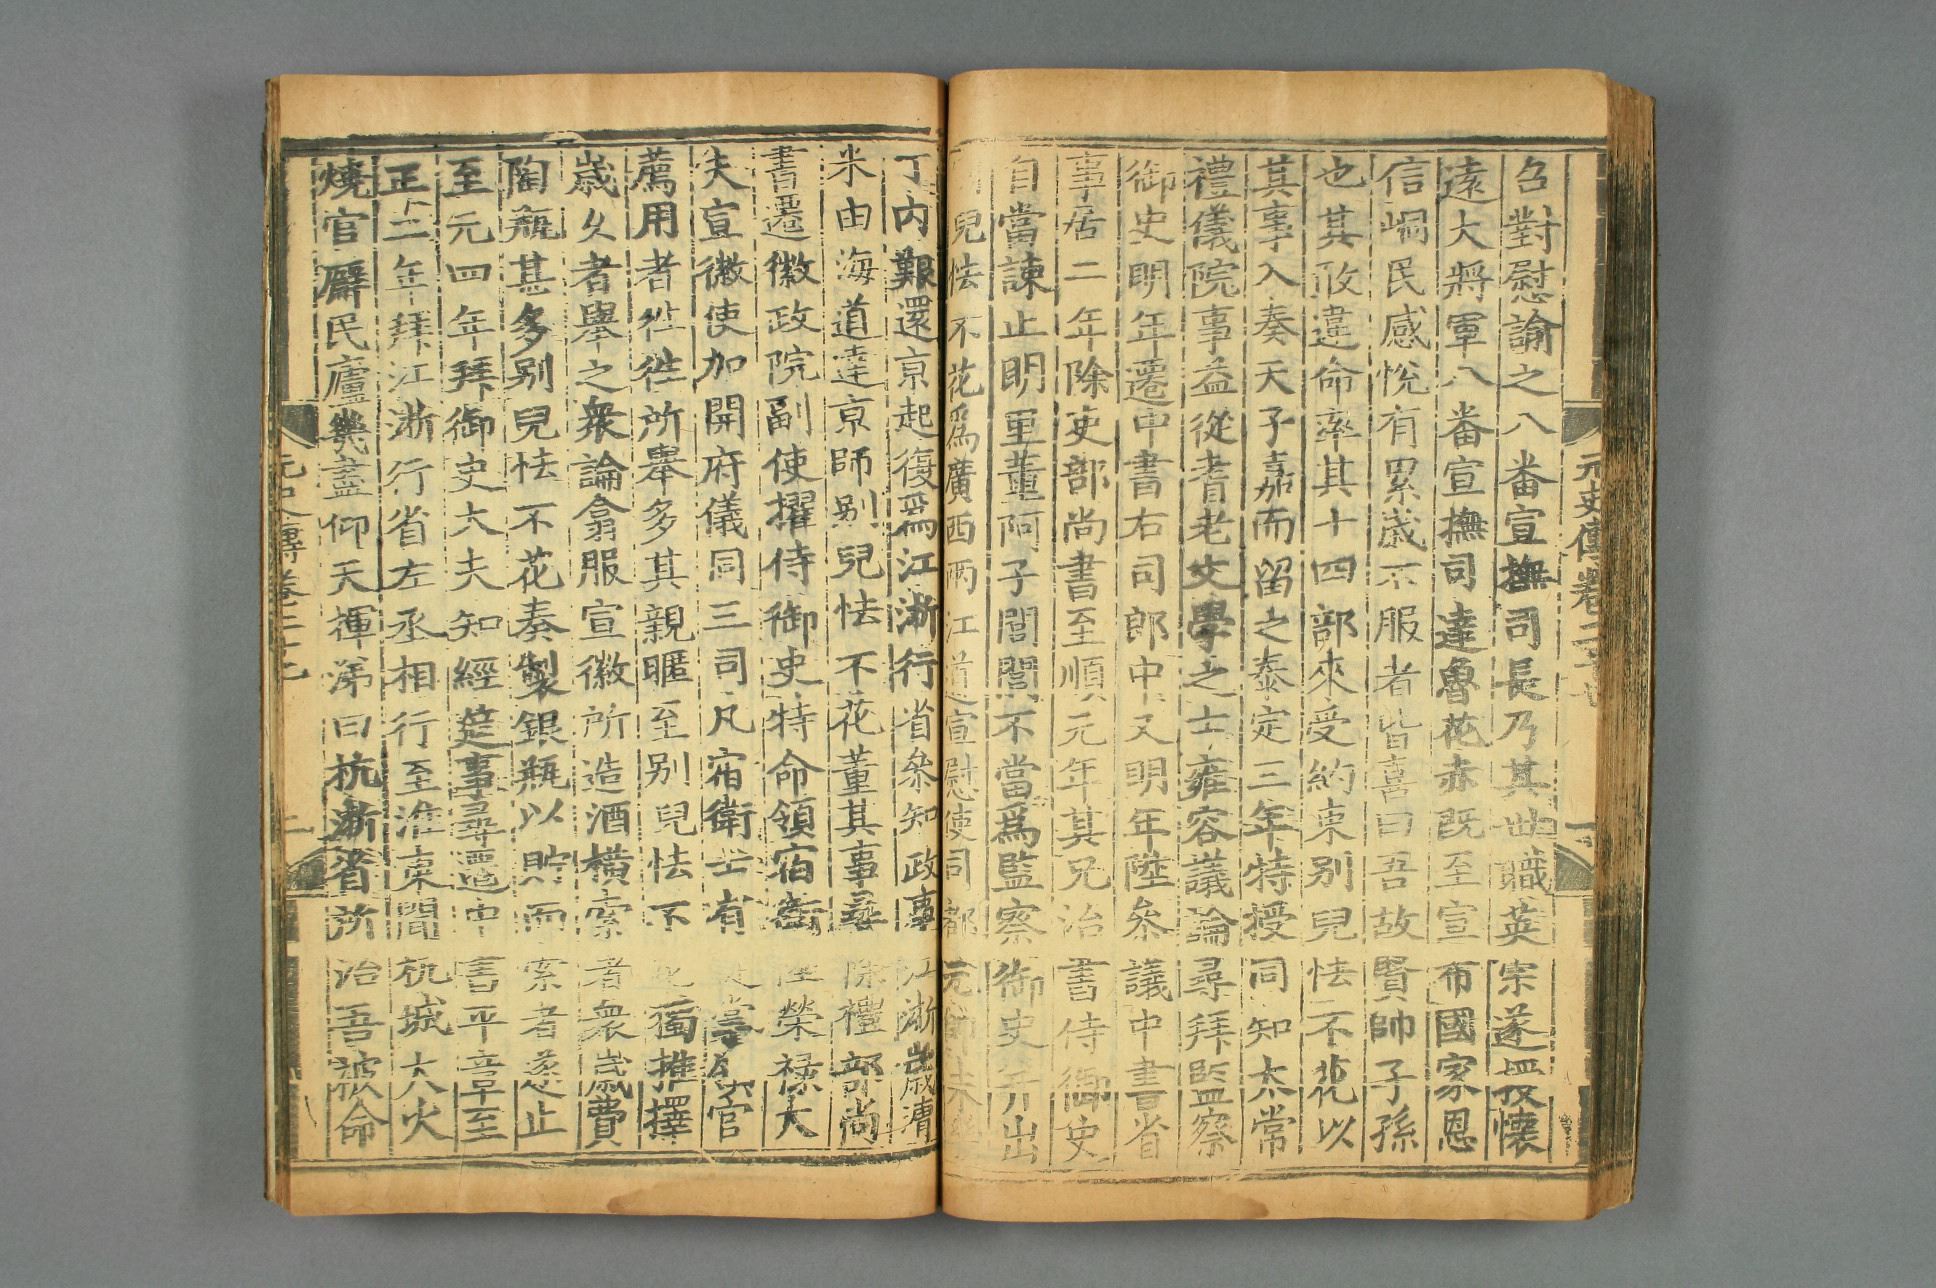 元史傳卷二十七
召對慰諭之八番宣撫司長乃其世職英宗遂授懷
遠大將軍八番宣撫司達魯花赤既至宣布國家恩
信峒民感悅有累歲不服者皆喜曰吾故賢帥子孫
也其敢違命率其十四部來受約束別兒怯不花以
其事入奏天子嘉而留之泰定三年特授同知太常
禮儀院事益從耆老文學之士雍容議論尋拜監察
御史明年遷中書右司郎中又明年陞參議中書省
事居二年除吏部尚書至順元年其兄治書侍御史
自當諫止明里董阿子閭閭不當為監察御史并出
兒怯不花爲廣西兩江道宣慰使司都元帥
丁內艱還京起復爲江浙行省參知政事江浙歲漕
米由海道達京師別兒怯不花董其事尋除禮部尚
書遷徽政院副使擢侍御史特命領宿衛陞榮祿大
夫宣徽使加開府儀同三司凡宿衛士有從掌領官
薦用者徃徃所舉多其親暱至別兒怯不花獨推擇
歲久者舉之衆論翕服宣徽所造酒橫索者衆歲費
陶瓶甚多別兒怯不花奏製銀瓶以貯而索者遂止
至元四年拜御史大夫知經筵事尋遷中書平章至
正二年拜江浙行省左丞相行至淮東聞杭城大火
燒官廨民廬幾盡仰天揮涕曰杭浙省所治吾被命
元史傳卷二十七
二